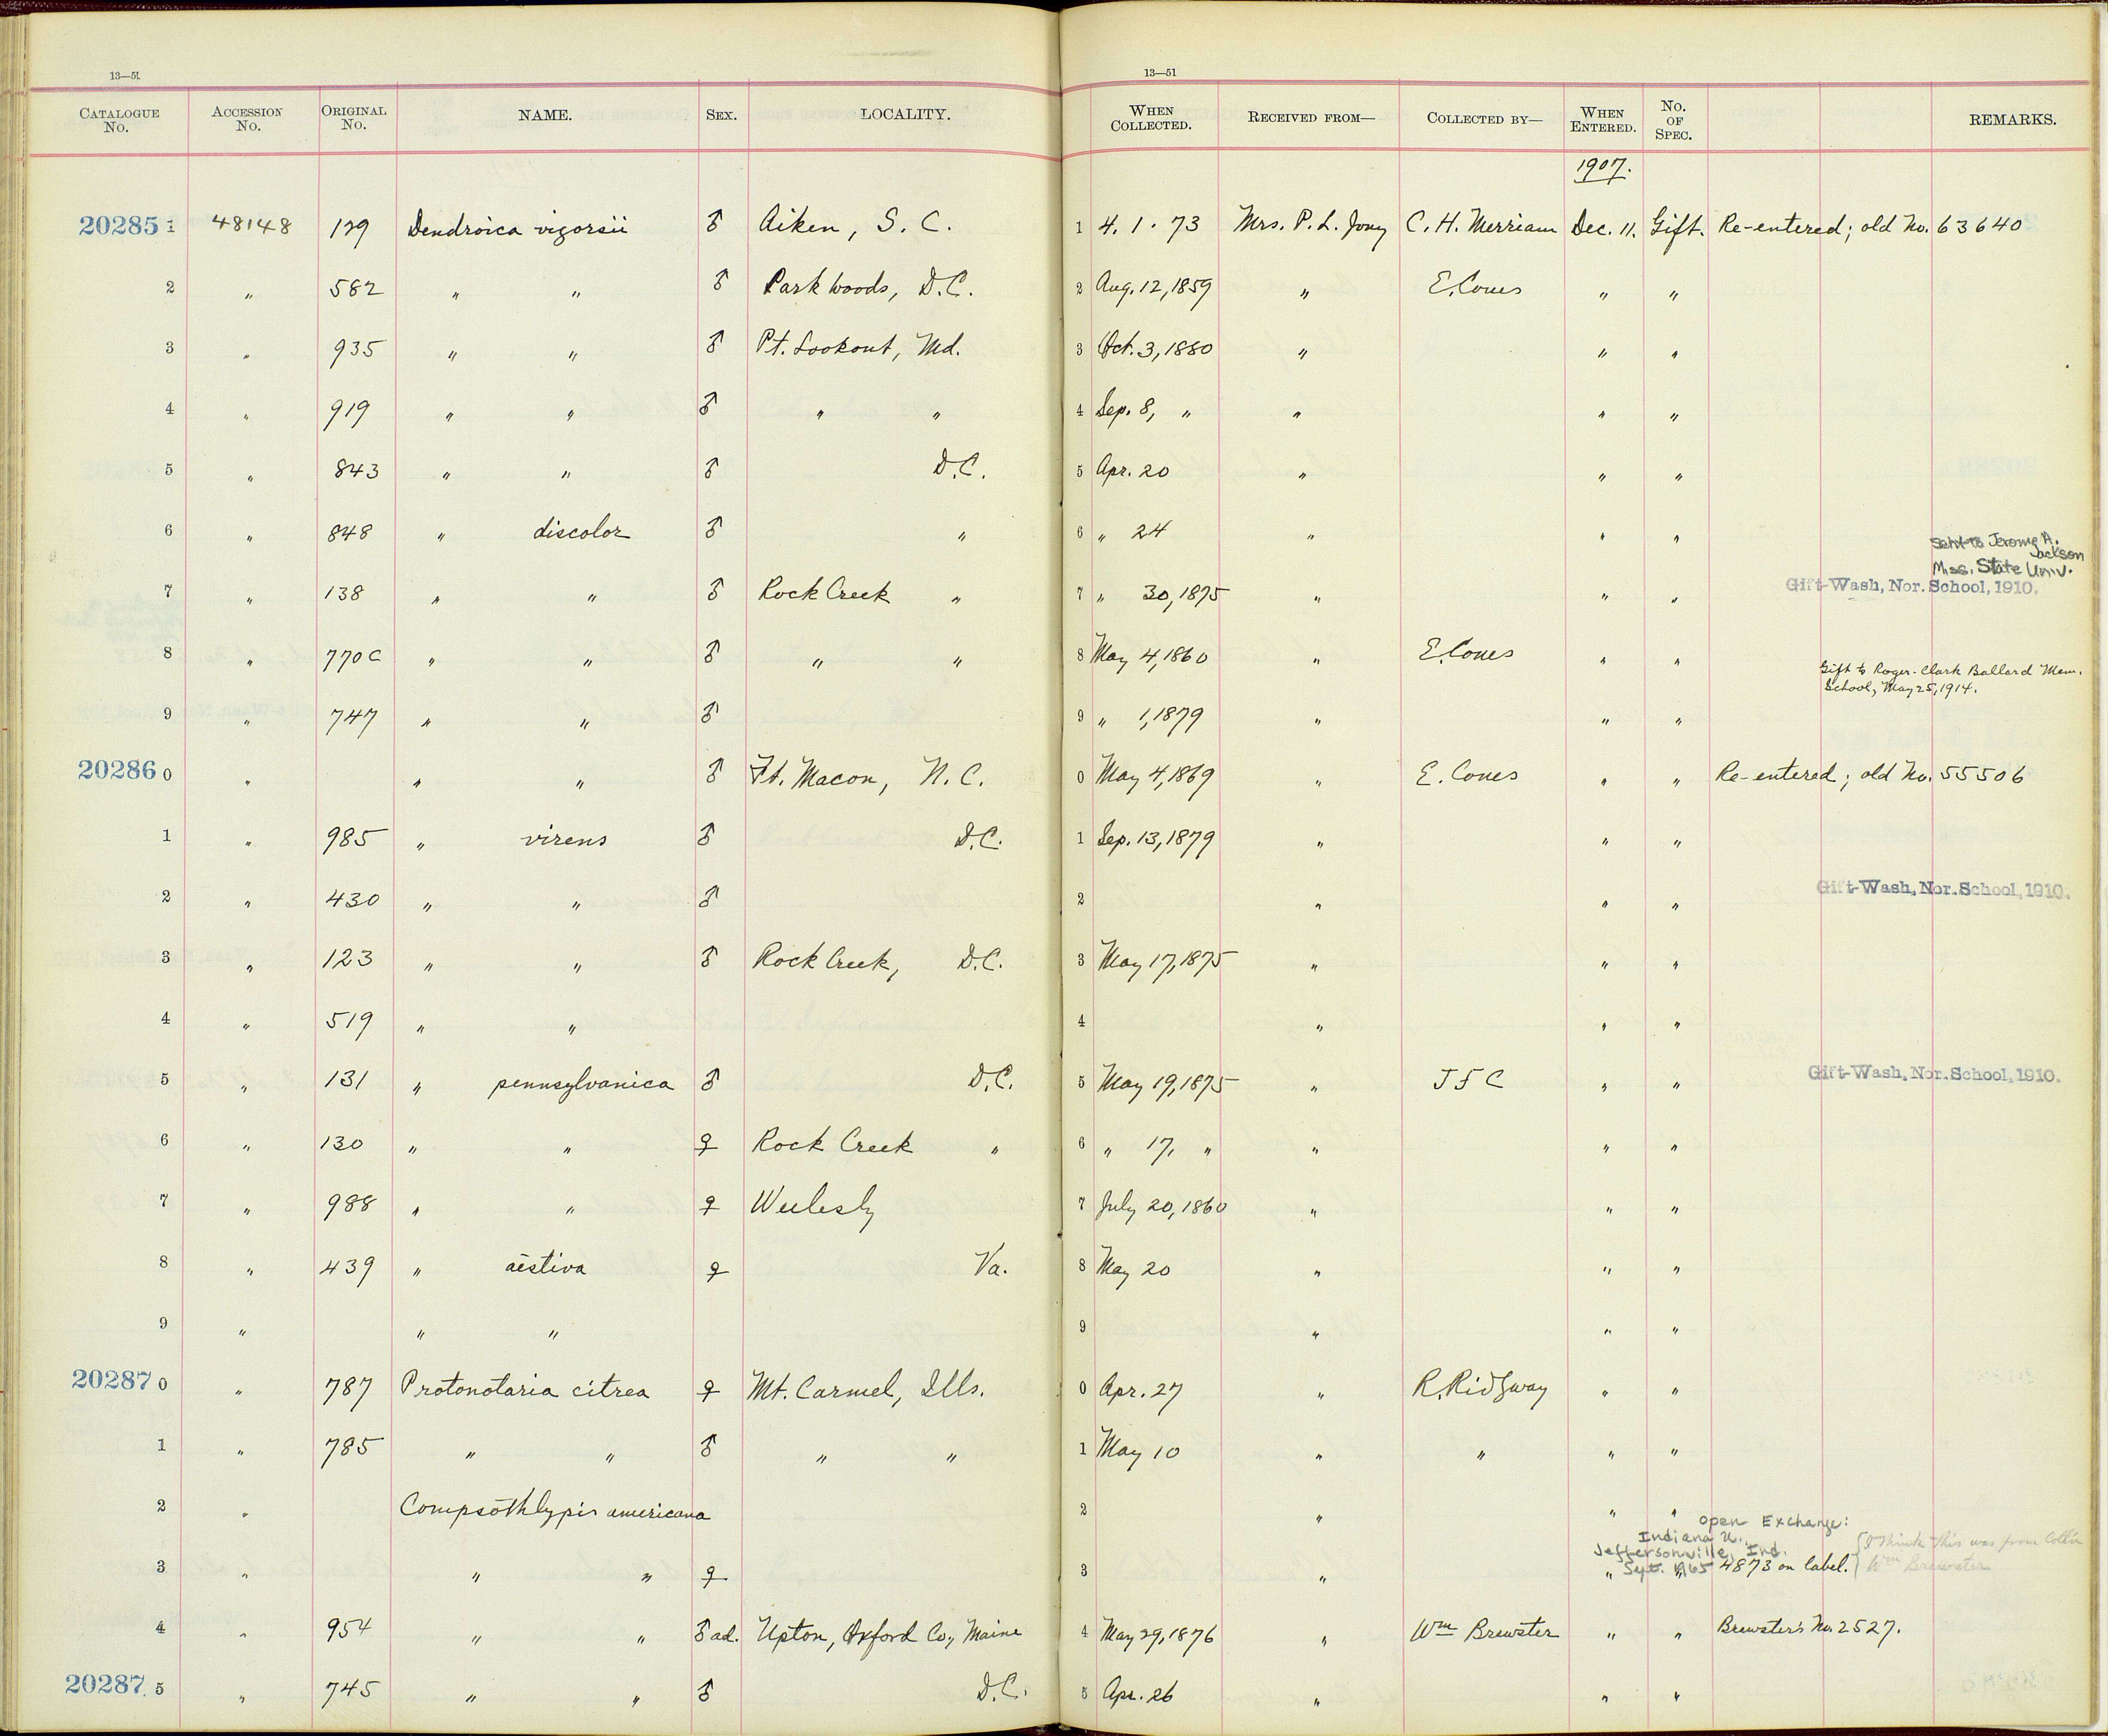 13—51
CATALOGUE No. ACCESSION No. ORIGINAL No. NAME. SEX. LOCALITY. WHEN COLLECTED. RECEIVED FROM— COLLECTED BY— WHEN ENTERED. No. OF SPEC. REMARKS.
13—51
1907.
20285 1 48148 129 Dendroica vigorsii ♂ Aiken, S. C. 1 4. 1. 73 Mrs. P. L. Jouy C. H. Merriam Dec. 11. Gift. Re-entered; old No. 63640
2 " 582 " " ♂ Park Woods, D.C. 2 Aug. 12, 1859 " E. Coues " "
3 " 935 " " ♂ Pt. Lookout, Md. 3 Oct. 3, 1880 " " "
4 " 919 " " ♂ " " 4 Sep. 8, " " " "
5 " 843 " " ♂ D.C. 5 Apr. 20 " " "
6 " 848 " discolor ♂ " 6 " 24 " " "
Sent to Jerome A. Jackson
Miss. State Univ.
7 " 138 " " ♂ Rock Creek " 7 " 30, 1875 " " " Gift-Wash, Nor. School, 1910.
8 " 770c " " ♂ " " 8 May 4, 1860 " E. Coues " "
Gift to Roger-Clark Ballard Mem.
School, May 25, 1914.
9 " 747 " " ♂ 9 " 1, 1879 " " "
20286 0 " " " ♂ Ft. Macon, N. C. 0 May 4, 1869 " E. Coues " " Re-entered; old No. 55506
1 " 985 " virens ♂ D.C. 1 Sep. 13, 1879 " " "
2 " 430 " " ♂ 2 " " " Gift-Wash, Nor. School, 1910.
3 " 123 " " ♂ Rock Creek, D.C. 3 May 17, 1875 " " "
4 " 519 " " 4 " " "
5 " 131 " pennsylvanica ♂ D.C. 5 May 19, 1875 " J F C " " Gift-Wash, Nor. School, 1910.
6 " 130 " " ♀ Rock Creek " 6 " 17, " " " "
7 " 988 " " ♀ 7 July 20, 1860 " " "
8 " 439 " aestiva ♀ Va. 8 May 20 " " "
9 " " " 9 " " "
20287 0 " 787 Protonotaria citrea ♀ Mt. Carmel, Ills. 0 Apr. 27 " R. Ridgway " "
1 " 785 " " ♂ " " 1 May 10 " " " "
2 " Compsothlypis americana 2 " " "
Open Exchange:
Indiana U.,
Jeffersonville, Ind.
Sept. 1965
3 " " " ♀ 3 " " " 4873 on label. { I think this was from Coll'n
Wm Brewster
4 " 954 " " ♂ ad. Upton, Oxford Co., Maine 4 May 29, 1876 " Wm Brewster " " Brewster's No. 2527.
20287 5 " 745 " " ♂ D.C. 5 Apr. 26 " " "